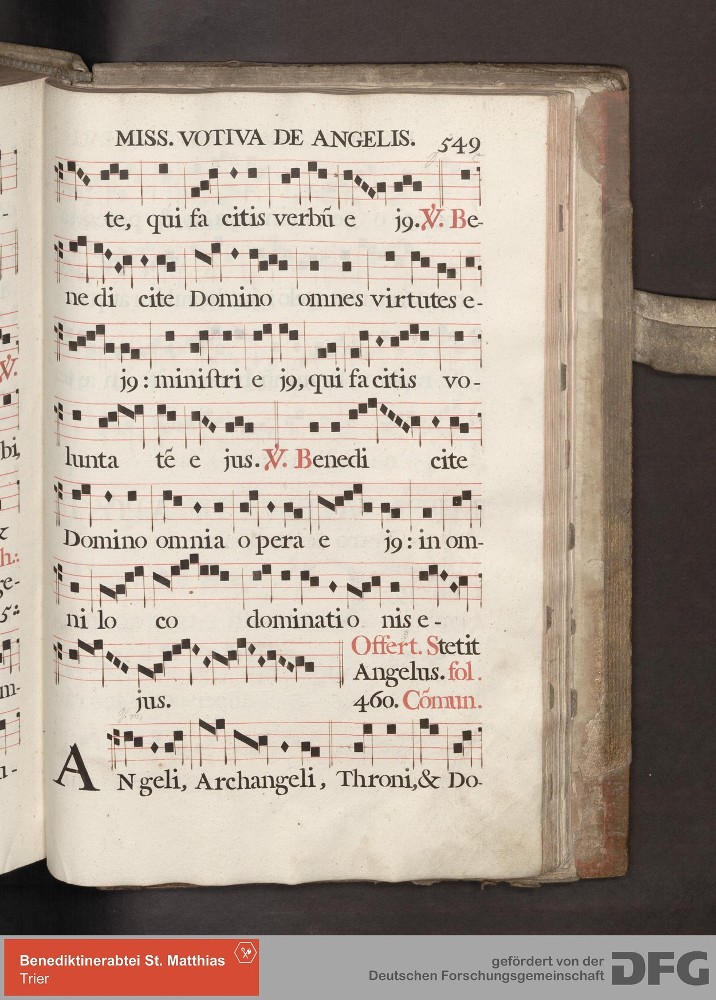 MISS. VOTIVA DE ANGELIS. 549
te, qui fa citis verbũ e j9. ℣. Be-
ne di cite Domino omnes virtutes e-
j9: miniſtri e j9, qui fa citis vo-
lunta tẽ e jus. ℣. Benedi cite
Domino omnia o pera e j9: in om-
ni lo co dominati o nis e-
jus.
Offert. Stetit
Angelus. fol.
460. Cõmun.
ANgeli, Archangeli, Throni, & Do-
℣.
bi,
&
h.:
ge-
5:
m-
u-
Benediktinerabtei St. Matthias
Trier
gefördert von der
Deutschen Forschungsgemeinschaft
DFG